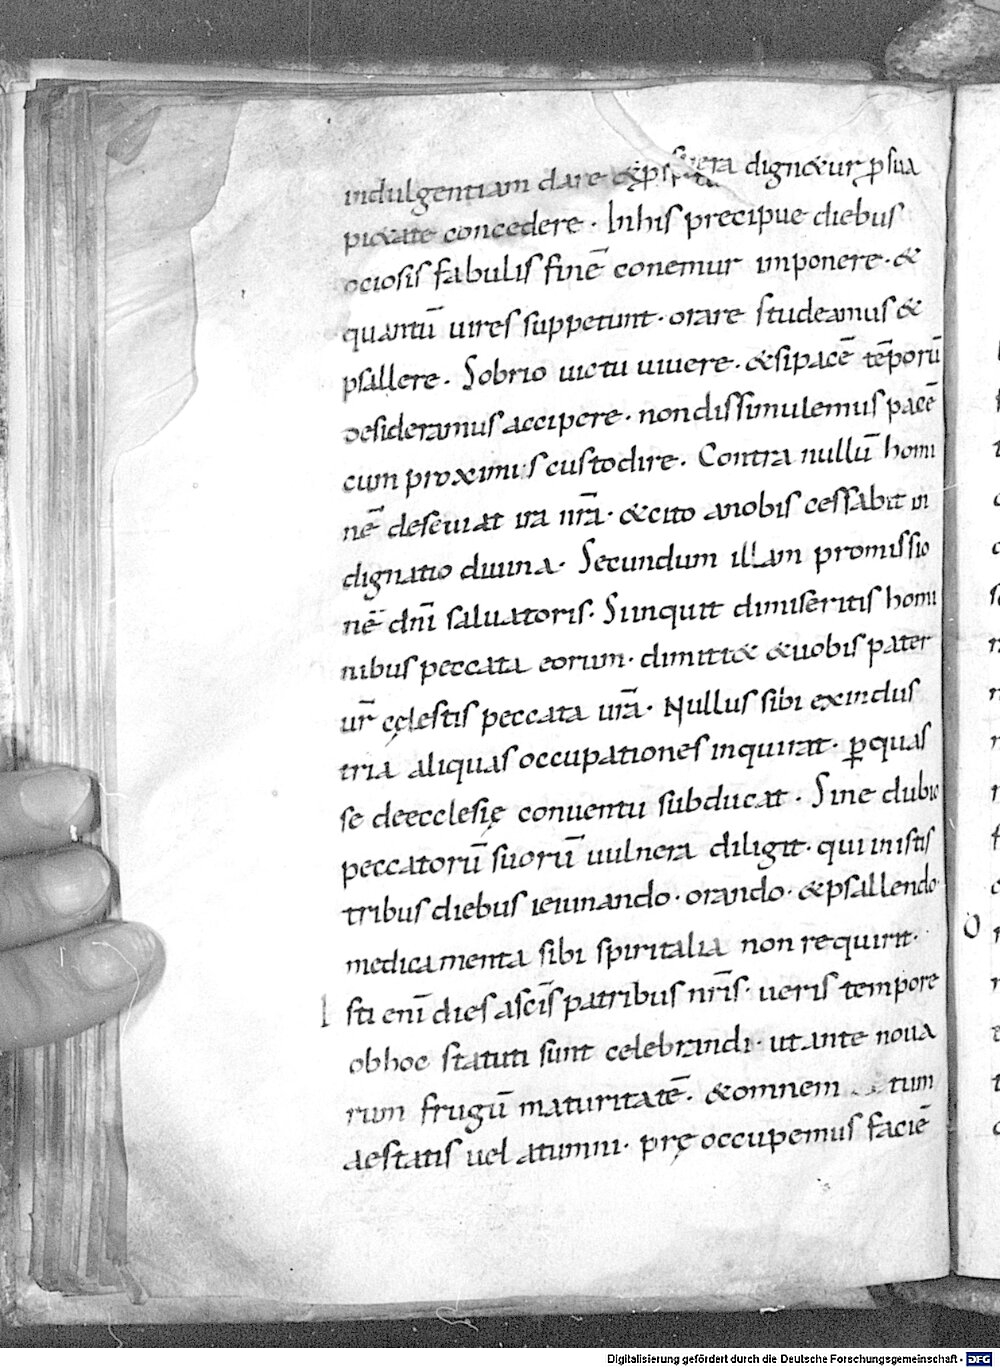 indulgentiam dare & dign&ur ꝑ sua
pi&ate concedere · In his precipue diebus
ociosis fabulis finē conemur imponere · &
quantū uires suppetunt · orare studeamus &
psallere · Sobrio uictu uiuere · & si pacē tēporū
desideramus accipere · non dissimulemus pacē
cum proximis custodire · Contra nullū homi
nē deseuiat ira nr̄a · & cito a nobis cessabit in
dignatio diuina · Secundum illam promissio
nē dn̄i saluatoris · Si inquit dimiseritis homi
nibus peccata eorum · dimitt& & uobis pater
ur̄ cęlestis peccata ur̄a · Nullus sibi ex indus
tria aliquas occupationes inquirat · ꝑ quas
se de ecclesię conuentu subducat · Sine dubio
peccatorū suorū uulnera diligit · qui in istis
tribus diebus ieiunando · orando · & psallendo
medicamenta sibi spiritalia non requirit ·
Isti enī dies a sc̄is patribus nr̄is · ueris tempore
ob hoc statuti sunt celebrandi · ut ante noua
rum frugū maturitatē · & omnem tum
aestatis uel atumni · pręoccupemus faciē
O
Digitalisierung gefördert durch die Deutsche Forschungsgemeinschaft - DFG